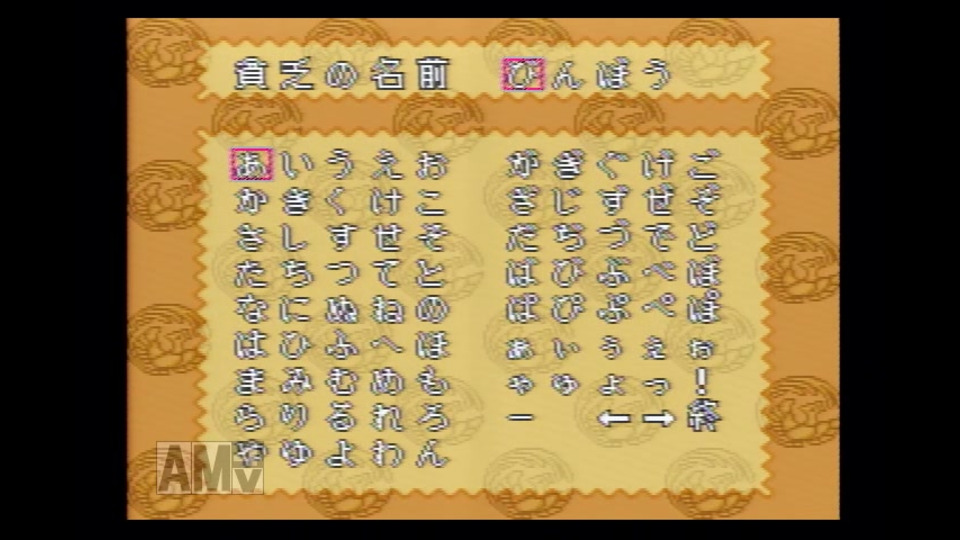 貧乏の名前 びんぼう
あいうえお がぎぐげご
かきくけこ ざじずぜぞ
さしすせそ だぢづでど
たちつてと ばびぶべぼ
なにぬねの ぱぴぷぺぽ
はひふへほ ぁぃぅぇぉ
まみむめも ゃゅょっ！
らりるれろ ー ←→終
やゆよわん
AMv